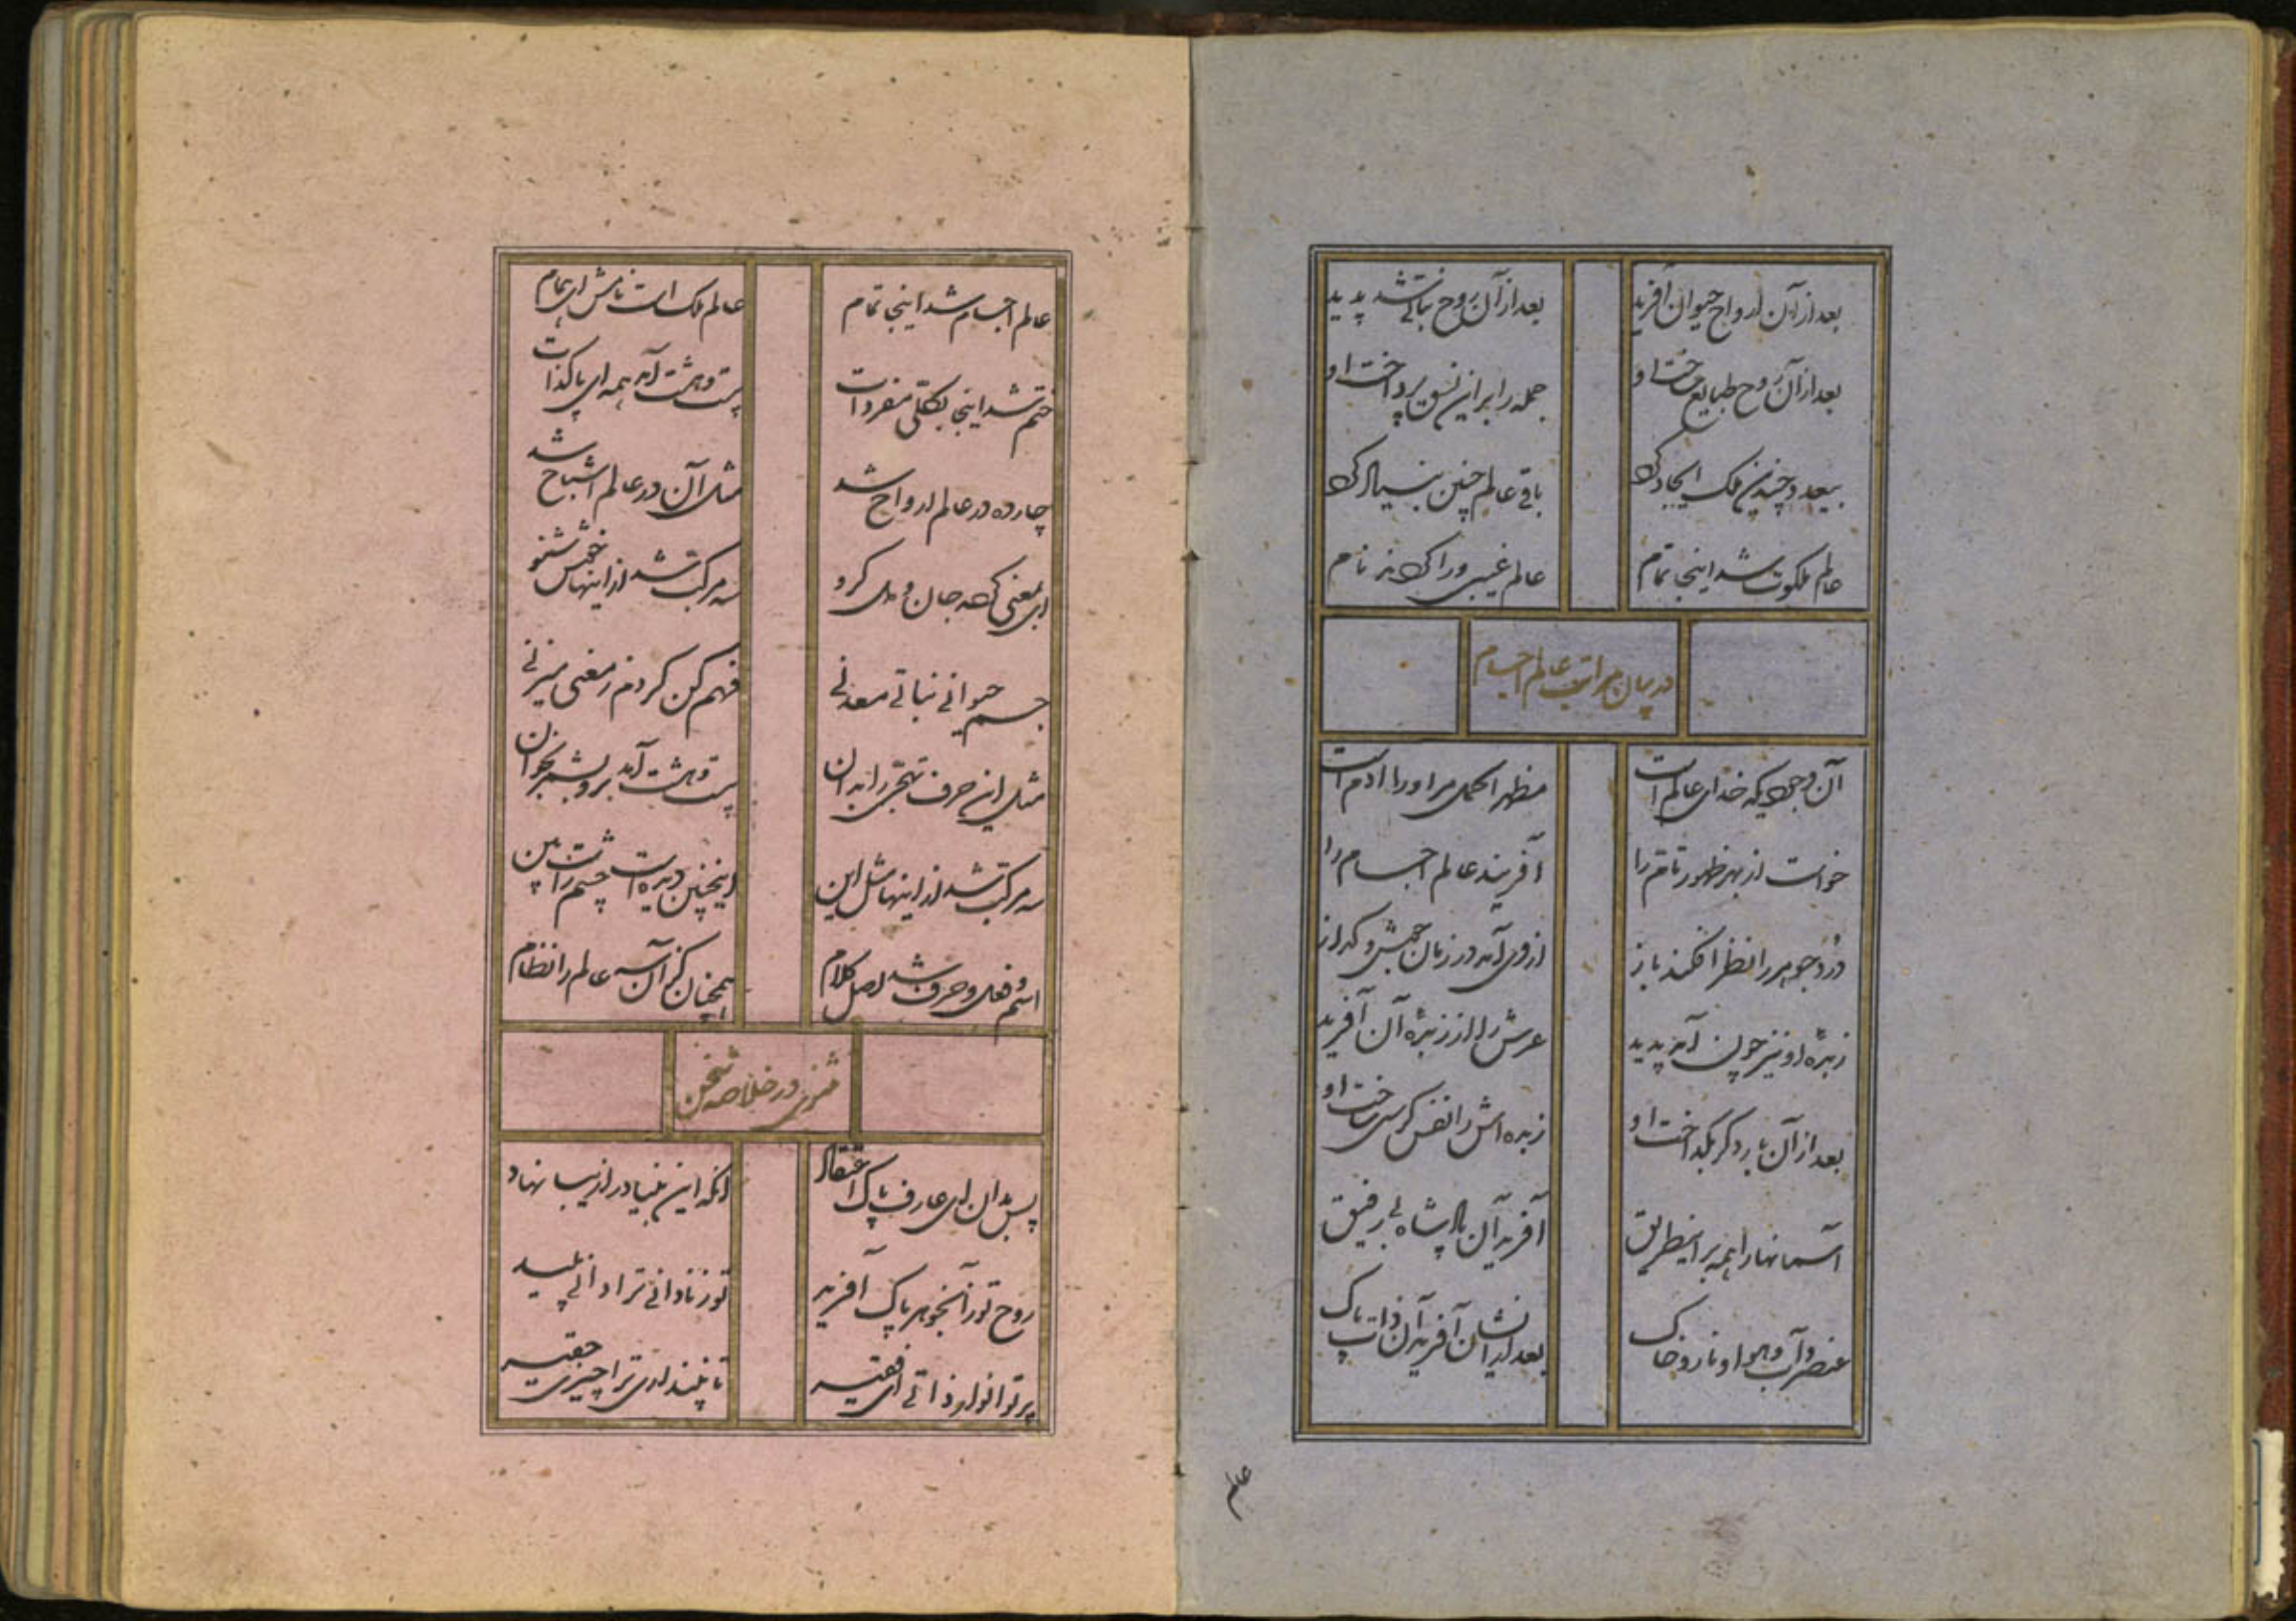 بعد از آن ارواح حیوان آفرید بعد از آن روح نباتی شد پدید
بعد از آن روح طبایع ساخت او جمله را بر این نسق پرداخت او
بعد چندین ملک ایجاد کرد باقی عالم چنین بنیاد کرد
عالم ملکوت شد اینجا تمام عالم غیبی ورا کردند نام
در بیان مراتب عالم اجسام
آن وجودیکه خدای عالم است مظهر اکمل مر او را آدم است
خواست از بهر ظهور تام را آفریند عالم اجسام را
درد جوهر را نظر افکند باز از وی آمد در زمان جوش و گداز
زبده او نیز چون آمد پدید عرش را از زبده آن آفرید
بعد از آن بار دگر بگداخت او زبده اش را نفس کرسی ساخت او
آسمانها را همه بر اینطریق آفرید آن پادشاه بی رفیق
عنصر و آب و هوا و نار و خاک بعد ایشان آفرید آن ذات پاک
عالم
عالم اجسام شد اینجا تمام عالم ملک است نامش ای همام
ختم شد اینجا بکلی مفردات بیست و هشت آمد همه ای پاکذات
چارده در عالم ارواح شد مثل آن در عالم اشباح شد
ای بمعنی کرده جان و دل گرو سه مرکب شد از اینها خوش شنو
جسم حیوانی نباتی معدنی فهم کن گر دم ز معنی میزنی
مثل این حرف تهجی را بدان بیست و هشت آمد برو بشمر بخوان
سه مرکب شد از اینها مثل این اینچنین دیده است چشم راست بین
اسم و فعل و حرف شد اصل کلام همچنان کز آن سه عالم را نظام
مثنوی در خلاصه سخن
پس بدان ای عارف پاک اعتقاد آنکه این بنیاد را زیبا نهاد
روح تو ز آنجوهر پاک آفرید تو ز نادانی ترا دانی پلید
پرتو انوار ذاتی ای فقیر تا نپنداری ترا چیزی حقیر